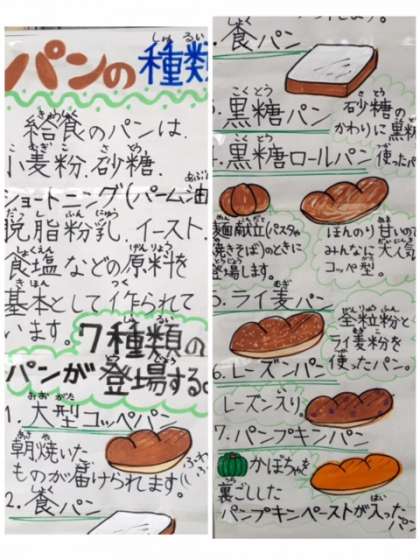 パンの種類
給食のパンは、
小麦粉、砂糖、
ショートニング(パーム油
脱脂粉乳、イースト、
食塩などの原料を
基本として作られて
います。
7種類の
パンが登場する。
1. 大型コッペパン
朝焼いた
ものが届けられます。
2. 食パン
食パン
3. 黒糖パン
砂糖の
かわりに黒糖
使った
4. 黒糖ロールパン
麺献立(パスタや
焼きそば)のときに
登場します。
ほんのり甘いので
みんなに大人気
コッペ型。
5. ライ麦パン
全粒粉と
ライ麦粉を
使ったパン。
6. レーズンパン
レーズン入り。
7. パンプキンパン
かぼちゃを
裏ごしした
パンプキンペーストが入った
パン